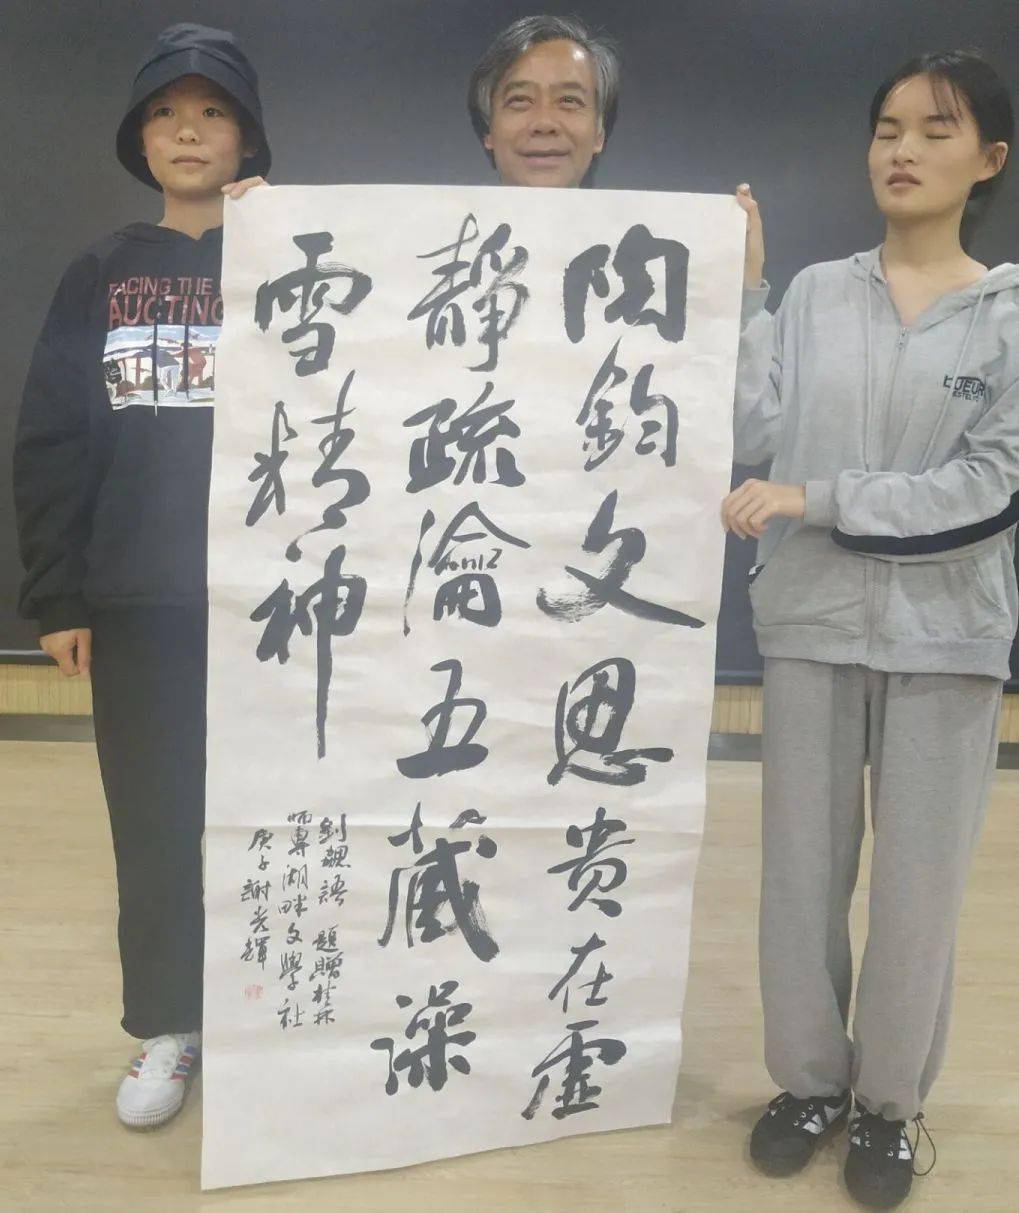 陶鈞文思貴在虛
靜疏瀹五藏澡
雪精神
劉勰語 題贈桂林
师專湖畔文學社
庚子謝光輝
FACING THE
AUCTING